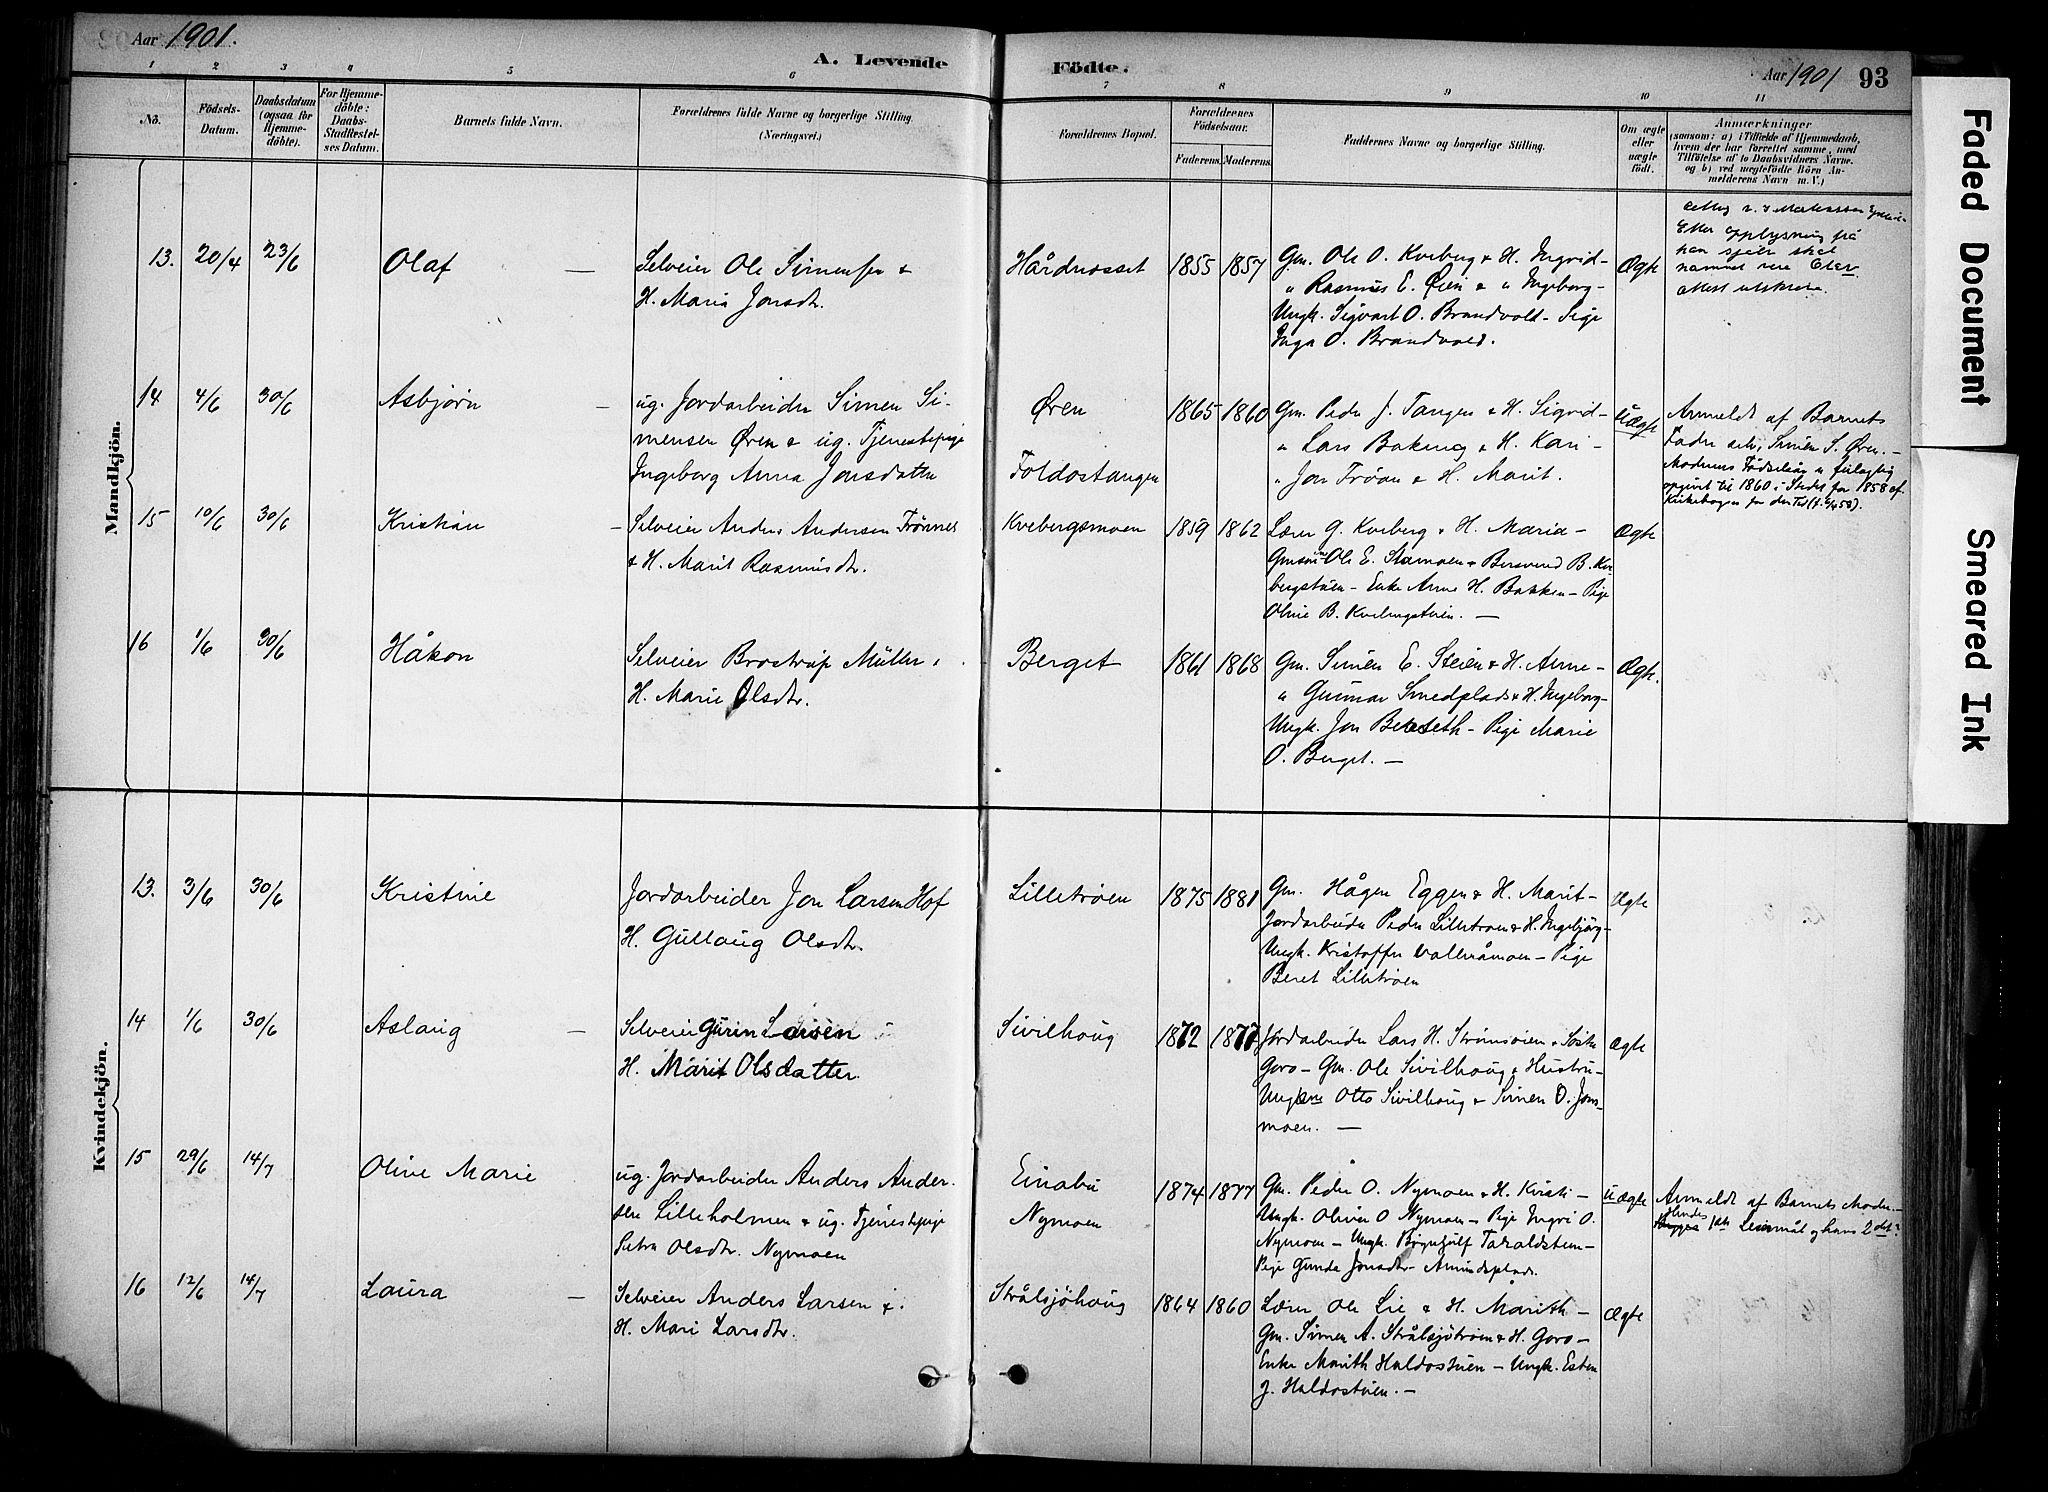 Aar 1901.
A. Levende
Födte.
Aar 1901
93
1 2 3 4 5 6 7 8 9 10 11
No.
Födsels-
Datum.
Daabsdatum
(ogsaa for
Hjemme-
döbte).
For Hjemme-
döbte:
Daabs-
Stadfæstel-
ses Datum.
Barnets fulde Navn.
Forældrenes fulde Navne og borgerlige Stilling.
(Næringsvei.)
Forældrenes Bopæl.
Forældrenes
Födselsaar.
Faderens. Moderens.
Faddernes Navne og borgerlige Stilling.
Om ægte
eller
uægte
födt.
Anmærkninger
(saasom: a) i Tilfælde af Hjemmedaab,
hvem der har forrettet samme, med
Tilföielse af to Daabsvidners Navne,
og b) ved uægtefödte Börn An-
melderens Navn m. V.)
Mandkjön.
13. 20/4 23/6
Olaf —
Selveier Ole Simensen &
H. Maria Jonsdtr.
Hårdnosset
1855 1857
Gm. Ole O. Kveberg & H. Ingrid-
" Rasmus E. Øien & " Ingeborg-
Ungk. Sigvart O. Brandvold- Pige
Inga O. Brandvold.
Ægte
Etter opplysning på
han sjøle skal
navnet være Olav.
attest utskrevet.
14 4/6 30/6
Asbjørn —
ug. Jordarbeider Simen Si-
mensen Øren & ug. Tjenestepige
Ingeborg Anna Jonsdatter
Øren
Foldostangen
1865 1860
Gm. Peder J. Tangen & H. Sigrid-
" Lars Bakmo & H. Kari-
" Jon Trøan & H. Marit.
Uægte
Anmeldt af Barnets
Fader selv, Simen S. Øren.-
Moderens Fødselsår er feilagtig
opgivt til 1860 i Stedet for 1858 af
Kirkebogen for den Tid
15 10/6 30/6
Kristian -
Selveier Anders Andersen Trønnes
& H. Marit Rasmusdtr.
Kvebergsmoen
1859 1862
Lærer G. Kveberg & H. Maria-
Gmænd Ole E. Stamoen & Bersvend B. Kve-
bergstuen- Enke Anne H. Bakken- Pige
Oline B. Kvebergstuen. —
Ægte
16 1/6 30/6
Håkon
Selveier Brostrup Müller &
H. Marie Olsdtr.
Berget
1861 1868
Gm. Simen E. Steien & H. Anne-
" Gunnar Smedplads & H. Ingeborg-
Ungk. Jon Bekseth- Pige Marie
O. Berget. —
Ægte.
Kvindekjön.
13. 3/6 30/6
Kristine
Jordarbeider Jon Larsen Hof
H. Gullaug Olsdtr.
Lilletrøen
1875 1881
Gm. Hågen Eggen & H. Marit-
Jordarbeider Peder Lilletrøen & H. Ingebjørg-
Ungk. Kristoffer Vollenåmoen- Pige
Beret Lilletrøen
Ægte
14 1/6 30/6
Aslaug —
Selveier Gurin Larsen
H. Marit Olsdatter
Sivilhaug
1872 1877
Jordarbeider Lars H. Strømsøien & Søster
Goro- Gm. Ole Sivilhoug & Hustru-
Ungkne Otto Sivilhoug & Simen O. Jons-
moen. —
Ægte
15 29/6 14/7
Oline Marie
ug. Jordarbeider Anders Ander-
sen Lilleholmen & ug. Tjenestepige
Petra Olsdtr. Nymoen
Einabu
Nymoen
1874 1877
Gm. Peder O. Nymoen & H. Kristi-
Ungk. Oliver O Nymoen- Pige Ingri O.
Nymoen- Ungk. Brynjulf Taraldstuen-
Pige Gunda Jonsdtr Amundsplads.
uægte
Anmeldt af Barnets Moder.-
Hendes 1ste Leiermål og hans 2det.
16 12/6 14/7
Laura —
Selveier Anders Larsen &
H. Mari Larsdtr.
Strålsjöhaug
1864 1860
Lærer Ole Lie & H. Marith-
Gm. Simen A. Strålsjötrøen & H. Goro-
Enke Marith Haldostuen- Ungk. Esten
J. Haldostuen.-
Ægte
Faded Document
Smeared Ink